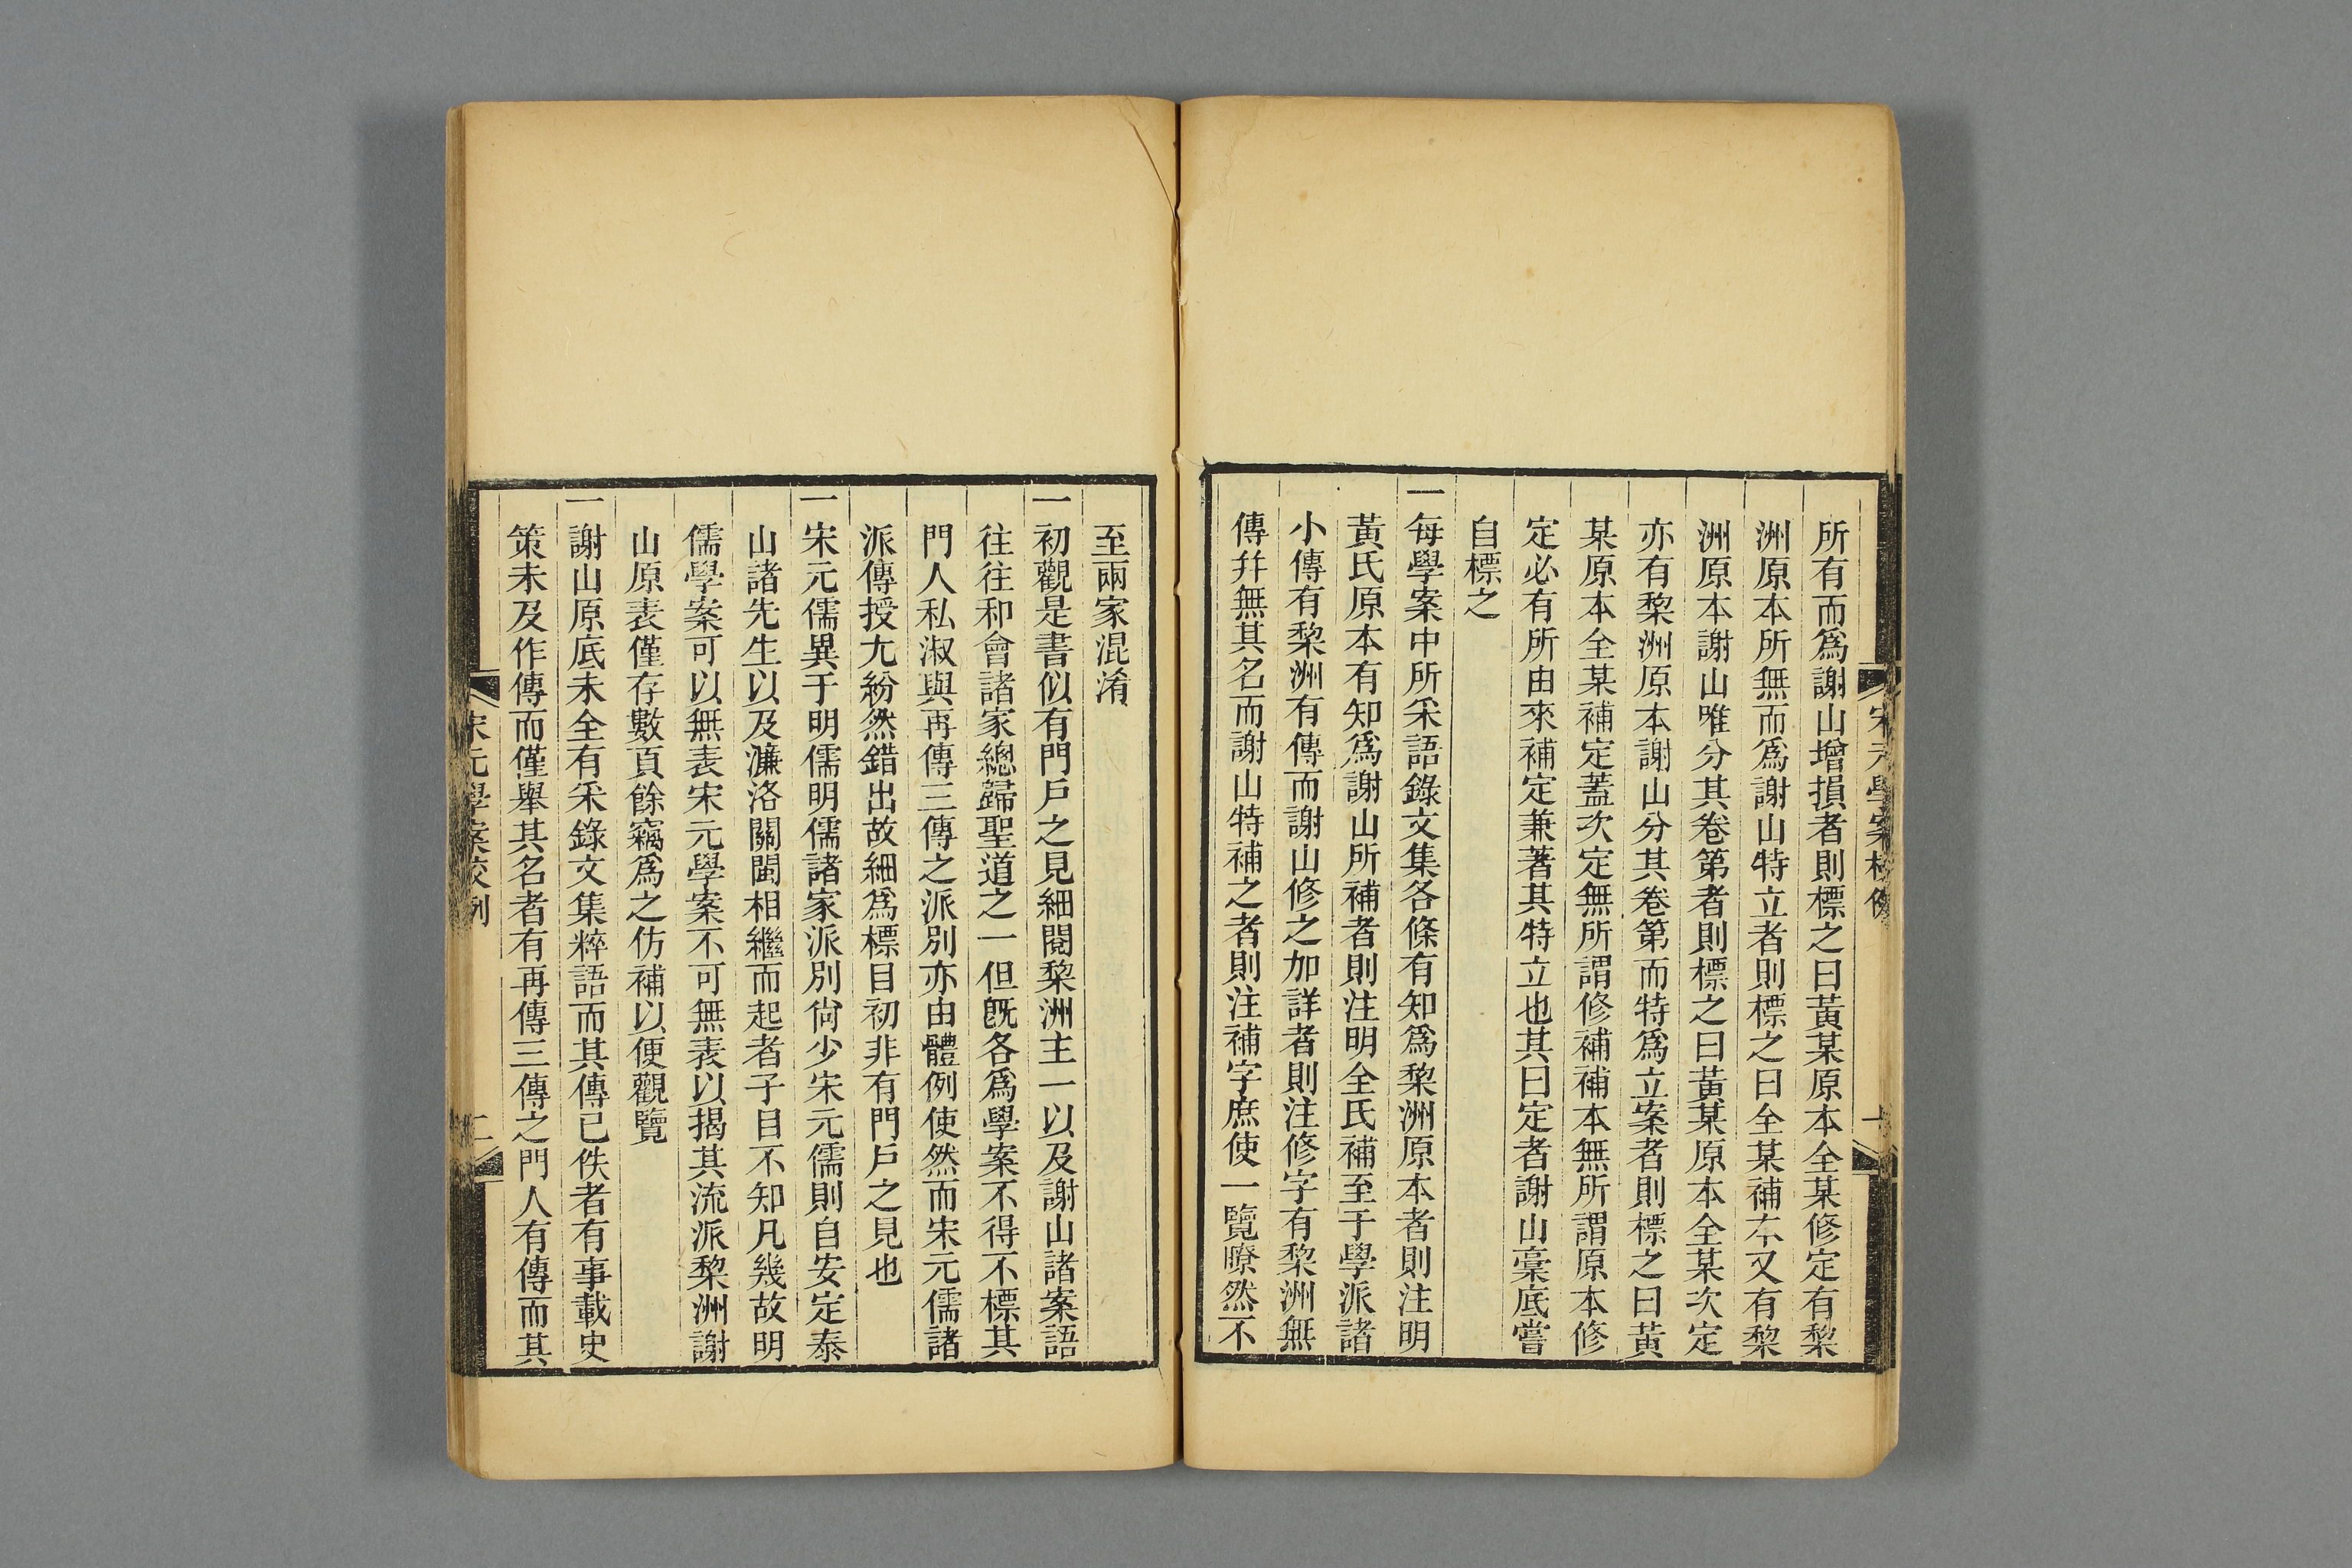 所有而爲謝山增損者則標之曰黃某原本全某修定有黎
洲原本所無而爲謝山特立者則標之曰全某補本又有黎
洲原本謝山唯分其卷第者則標之曰黃某原本全某次定
亦有黎洲原本謝山分其卷第而特爲立案者則標之曰黃
某原本全某補定蓋次定無所謂修補補本無所謂原本修
定必有所由來補定兼著其特立也其曰定者謝山稾底嘗
自標之
一每學案中所采語錄文集各條有知爲黎洲原本者則注明
黃氏原本有知爲謝山所補者則注明全氏補至于學派諸
小傳有黎洲有傳而謝山修之加詳者則注修字有黎洲無
傳幷無其名而謝山特補之者則注補字庶使一覽瞭然不
至兩家混淆
一初觀是書似有門戶之見細閱黎洲主一以及謝山諸案語
往往和會諸家總歸聖道之一但旣各爲學案不得不標其
門人私淑與再傳三傳之派別亦由體例使然而宋元儒諸
派傳授尢紛然錯出故細爲標目初非有門戶之見也
一宋元儒異于明儒明儒諸家派別尙少宋元儒則自安定泰
山諸先生以及濂洛關閩相繼而起者子目不知凡幾故明
儒學案可以無表宋元學案不可無表以揭其流派黎洲謝
山原表僅存數頁餘竊爲之仿補以便觀覽
一謝山原底未全有采錄文集粹語而其傳已佚者有事載史
策未及作傳而僅舉其名者有再傳三傳之門人有傳而其
宋元學案校例
二